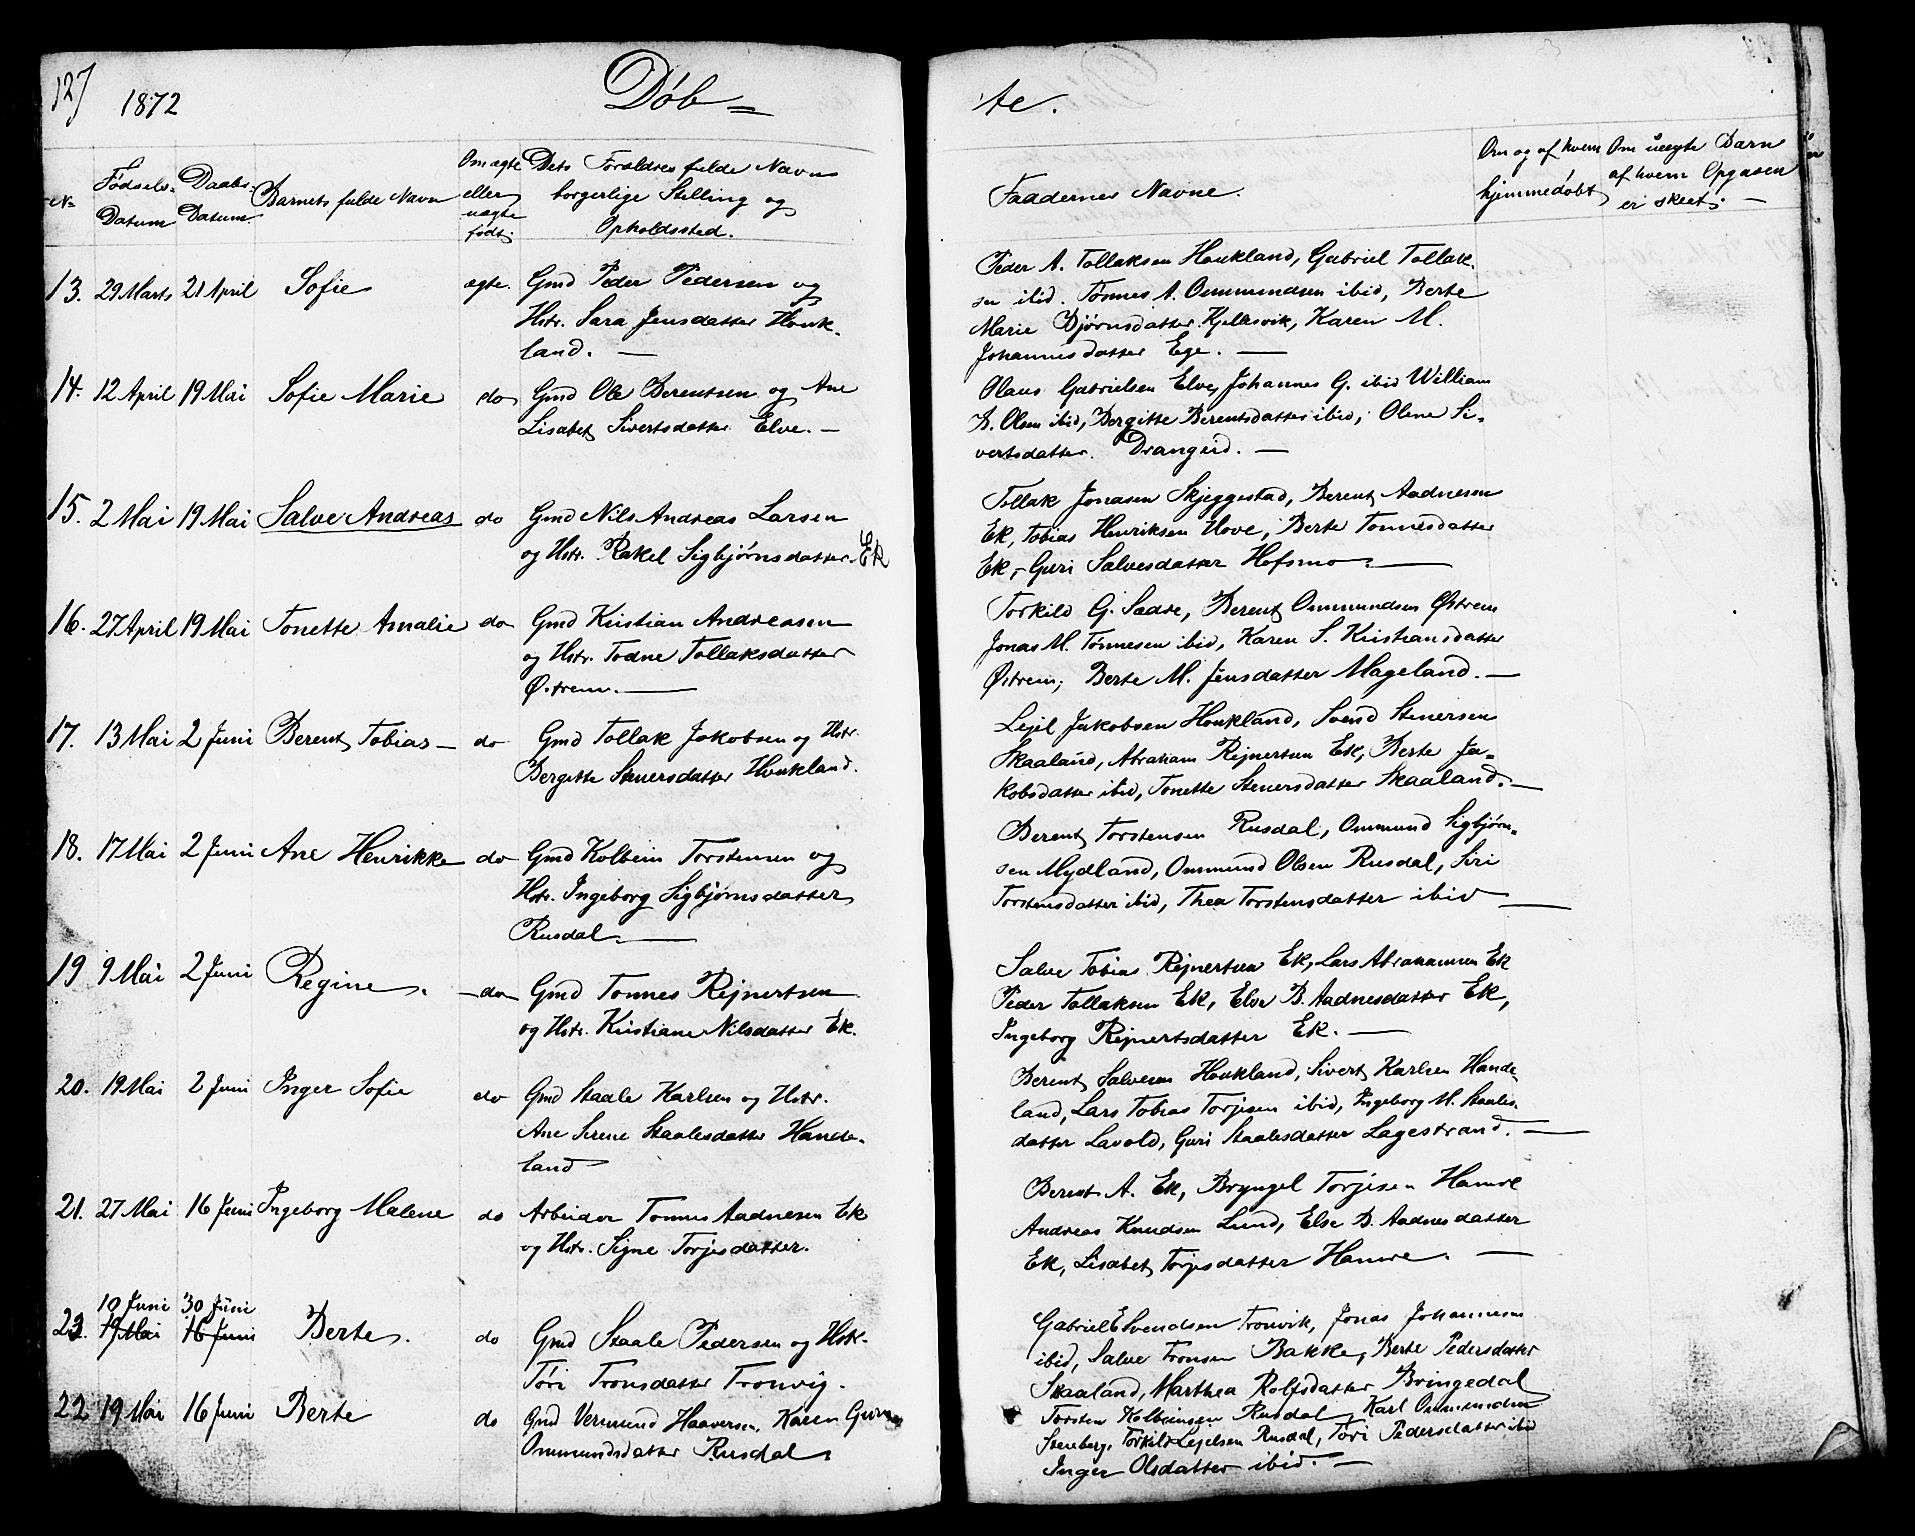 127
1872
Døb=
te.
No
Fødsels-
Datum
Daabs-
Datum
Barnets fulde Navn
Om ægte
eller
uægte
født.
Dets Forældres fulde Navn
borgerlige Stilling og
Opholdssted.
Faddernes Navne.
Om og af hvem
hjemmedøbt
Om uægte Barn
af hvem Opgaven
er skeet.
13. 29 Marts 21 April Sofie ægte. Gmd Peder Pedersen og
Hstr. Sara Jensdatter Houk-
land. —
Peder A. Tollaksen Houkland, Gabriel Tollak-
sen ibid. Tønnes A. Ommundsen ibid, Berte
Marie Bjørnsdatter Kjellesvik, Karen M.
Johannesdatter Ege. —
14. 12 April 19 Mai Sofie Marie do Gmd Ole Berentsen og Ane
Lisabet Sivertsdatter Elve. —
Olaus Gabrielsen Elve, Johannes G. ibid William
B. Olsen ibid, Bergitte Berentsdatter ibid, Olene Si-
vertsdatter. Drangeid. —
15. 2 Mai 19 Mai Salve Andreas do Gmd Nils Andreas Larsen
og Hstr. Rakel Sigbjørnsdatter. Ek
Tollak Jonasen Skjeggestad, Berent Aadnesen
Ek, Tobias Henriksen Hove, Berte Tonnesdatter
Ek, Guri Salvesdatter Hofsmo. —
16. 27 April 19 Mai Tonette Amalie do Gmd Kristian Andreasen
og Hstr. Todne Tollaksdatter
Østrem. —
Torkild G. Sædre, Berent Ommundsen Østrem
Jonas M. Tønnesen ibid, Karen S. Kristiansdatter
Østrem; Berte M. Jensdatter Mageland. —
17. 13 Mai 2 Juni Berent Tobias — do Gmd Tollak Jakobsen og Hstr.
Bergitte Stenersdatter Houkland.
Lejel Jakobsen Houkland, Svend Stenersen
Skaaland, Abraham Rejnertsen Ek, Berte Ja-
kobsdatter ibid, Tonette Stenersdatter Skaaland. —
18. 17 Mai 2 Juni Ane Henrikke do Gmd Kolbein Torstensen og
Hstr. Ingeborg Sigbjørnsdatter
Rusdal. —
Berent Torstensen Rusdal, Ommund Sigbjørn-
sen Mydland, Ommund Olsen Rusdal, Siri
Torstensdatter ibid, Thea Torstensdatter ibid —
19 9 Mai 2 Juni Regine. do Gmd Tonnes Rejnertsen
og Hstr. Kristiane Nilsdatter Ek.
Salve Tobias Rejnertsen Ek, Lars Abrahamsen Ek
Peder Tollaksen Ek, Else B. Aadnesdatter Ek,
Ingeborg Rejnertsdatter Ek. —
20. 19 Mai 2 Juni Inger Sofie do Gmd Staale Karlsen og Hstr.
Ane Serene Staalesdatter Hande-
land
Berent Salvesen Houkland, Sivert Karlsen Hande-
land, Lars Tobias Torjesen ibid, Ingeborg M. Staales-
datter Lavold, Guri Staalesdatter Lagestrand. —
21. 27 Mai 16 Juni Ingeborg Malene do Arbeider Tonnes Aadnesen Ek
og Hstr. Signe Torjesdatter.
Berent A. Ek, Bryngel Torjesen Hamre
Andreas Knudsen Lund, Else B. Aadnesdatter
Ek, Lisabet Torjesdatter Hamre. —
10 Juni 30 Juni
23. 19 Mai 16 Juni Berte. do Gmd Staale Pedersen og Hstr.
Tóri Tronsdatter Tronvig.
Gabriel E Svendsen Tronvik, Jonas Johannesen
ibid, Salve Tronsen Bakke, Berte Pedersdatter
Skaaland, Marthea Rolfsdatter Bringedal
22 19 Mai 16 Juni Berte do Gmd Vermund Haaversen, Karen Gurine
Ommundsdatter Rusdal.
Torsten Kolbeinsen Rusdal, Karl Ommundsen
Steneberg, Torkild Lejelsen Rusdal, Tóri Pedersdatter ibid
Inger Olsdatter ibid. —